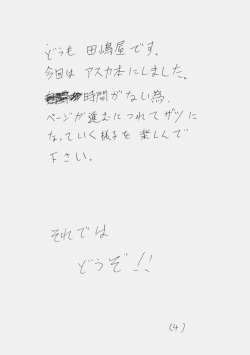 どうも 田嶋屋です。
今回は アスカ本にしました。
時間がない為、
ページが進むにつれてザツに
なっていく様子を楽しんで
下さい。
それでは
どうぞ!!
(4)